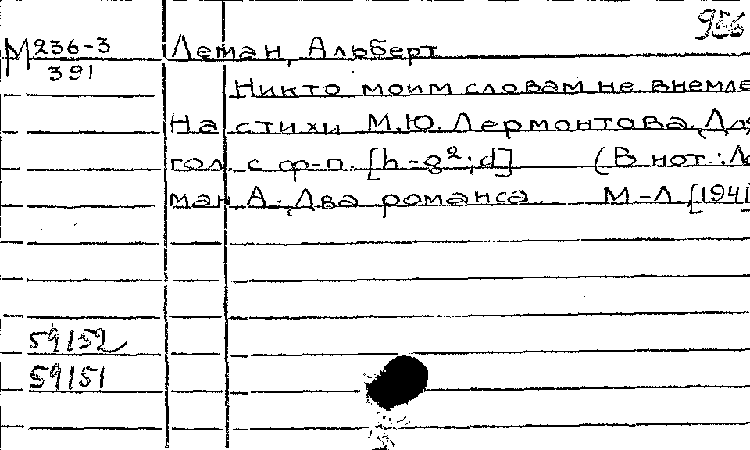 М 236-3 Леман, Альберт
391
Никто моим словам не внемле
На стихи М.Ю. Лермонтова. Для
гол. с ф-п. [h-g²; d] (В нот.: Ле
ман А. Два романса М-Л [1941
59152
59151